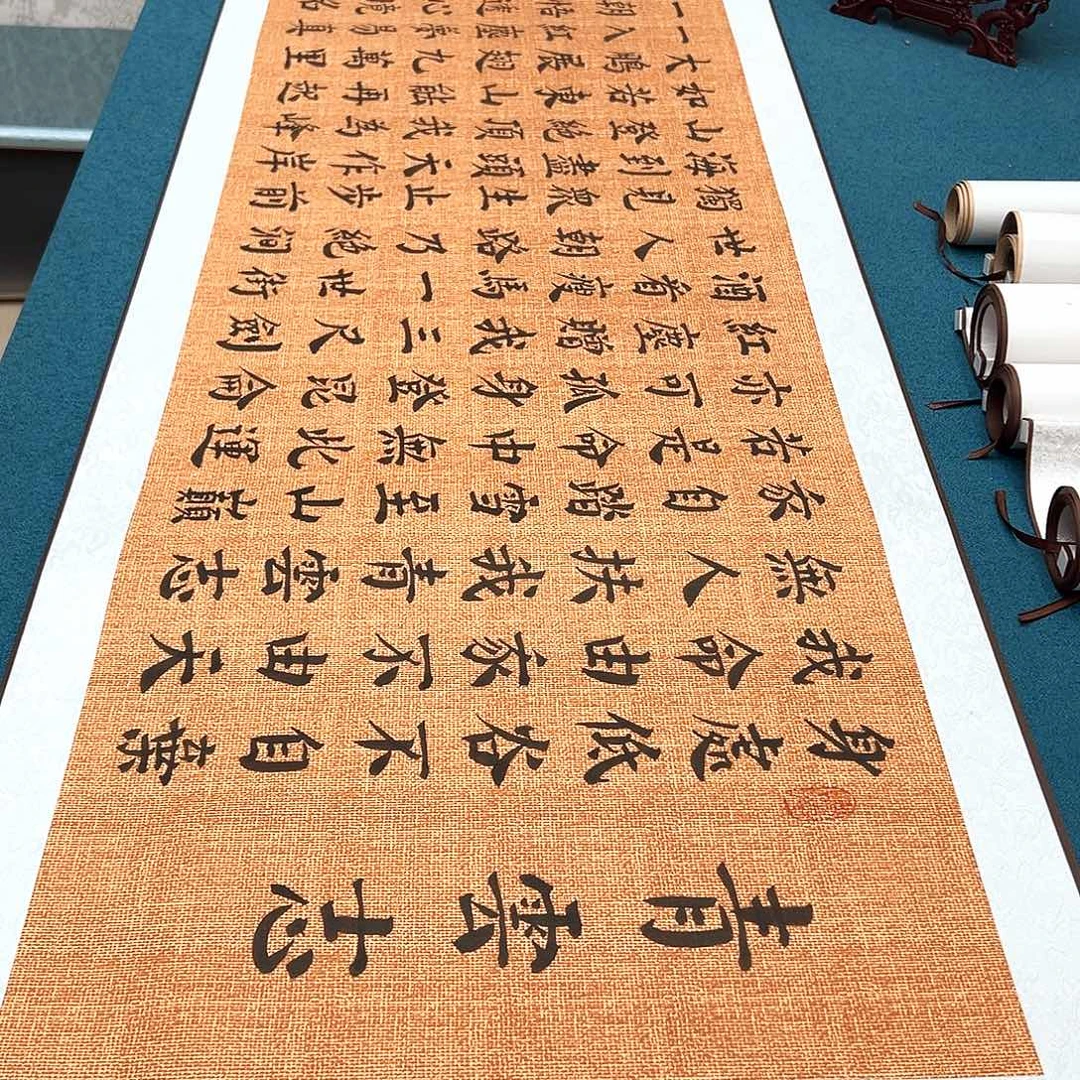 青雲志
身處低谷不自棄
我命由家不由天
無人扶我青雲志
家自踏雪至山巔
若是命中無此運
亦可孤身登昆侖
紅塵贈我三尺劍
酒着瘦馬一世街
世人朝路乃絕洞
獨見衆生止步前
海到盡頭天作岸
山登絕頂我為峰
如若東山能再起
大鵬展翅九萬里
一入紅塵易真
一朝悟道心